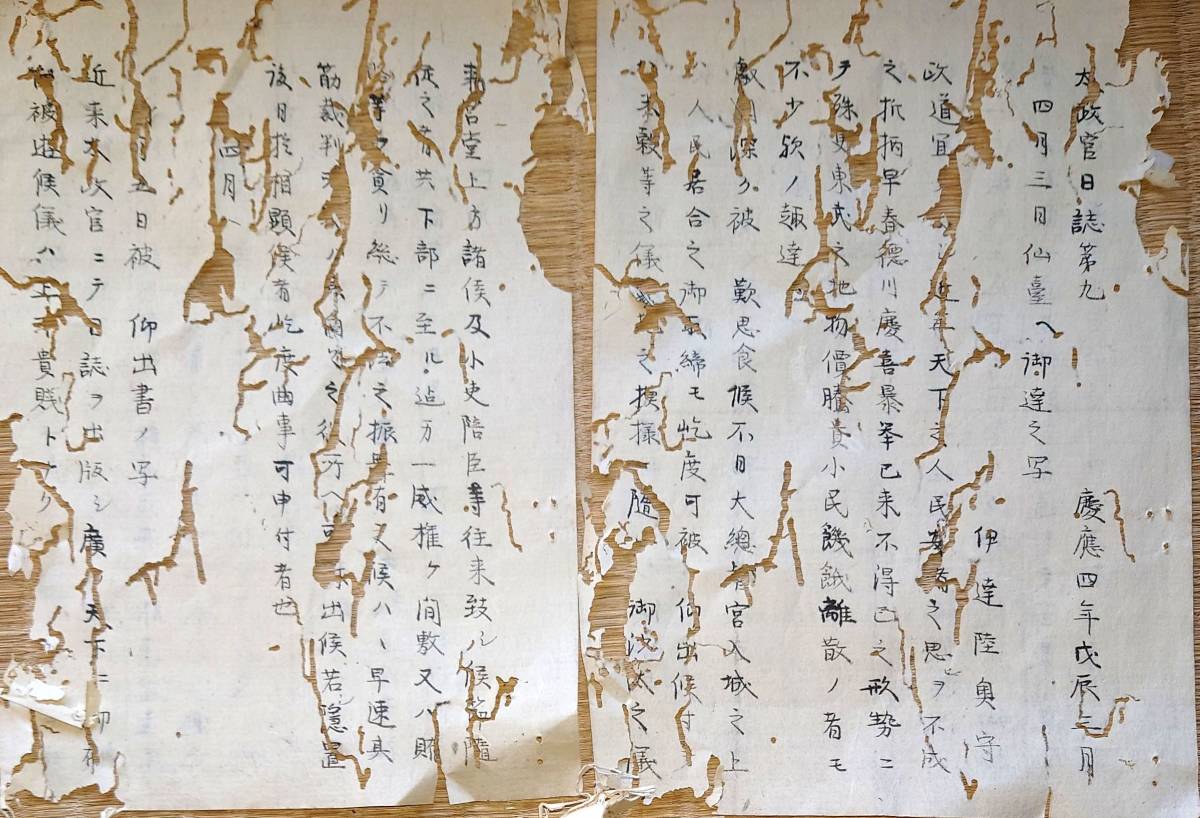 太政官日誌第九 慶應四年戊辰三月
四月三日仙臺ヘ御達之写
伊達陸奥守
政道宜 近年天下之人民 之思ヲ不成
之折柄早春徳川慶喜暴挙已来不得已之形勢ニ
ヲ殊更東武之地物價騰貴小民饑餓離散ノ者モ
不少欤ノ趣達
敷 深ク被 歎思食候不日大總督宮入城之上
人民居合之御取締モ屹度可被 仰出候付
米穀等之儀 之摸様 随 御沙汰之儀
宮堂上方諸侯及小吏陪臣等往来致シ候節随
従之者共下部ニ至ル迠万一威權ケ間敷又ハ賄
等ヲ貪リ総テ不法之振舞有之候ハヽ早速其
筋裁判 之役所ヘ可 出候若隠置
後日於相顕候者屹度曲事可申付者也
四月
月五日被 仰出書ノ写
近来太政官ニテ日誌ヲ出版シ廣 天下ニ御布
被遊候儀ハ上下貴賤トナク